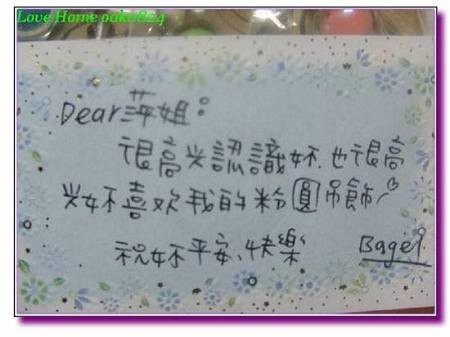 Love Home oako824
Dear萍姐:
很高興認識妳.也很高
興妳喜欢我的粉圓吊飾
祝妳平安、快樂
Bagel